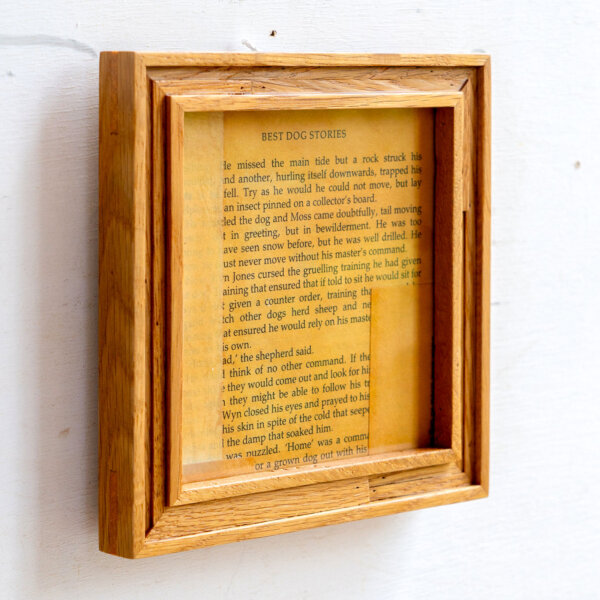 BEST DOG STORIES
He missed the main tide but a rock struck his
nd another, hurling itself downwards, trapped his
fell. Try as he would he could not move, but lay
an insect pinned on a collector's board.
led the dog and Moss came doubtfully, tail moving
t in greeting, but in bewilderment. He was too
ave seen snow before, but he was well drilled. He
ust never move without his master's command.
n Jones cursed the gruelling training he had given
aining that ensured that if told to sit he would sit for
given a counter order, training tha
ch other dogs herd sheep and ne
at ensured he would rely on his maste
is own.
ad,' the shepherd said.
think of no other command. If the
they would come out and look for his
they might be able to follow his tr
Wyn closed his eyes and prayed to his
his skin in spite of the cold that seepe
the damp that soaked him.
was puzzled. 'Home' was a comma
or a grown dog out with his